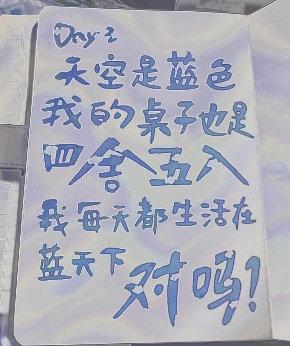 Day 2
天空是蓝色
我的桌子也是
四舍五入
我每天都生活在
蓝天下
对吗!